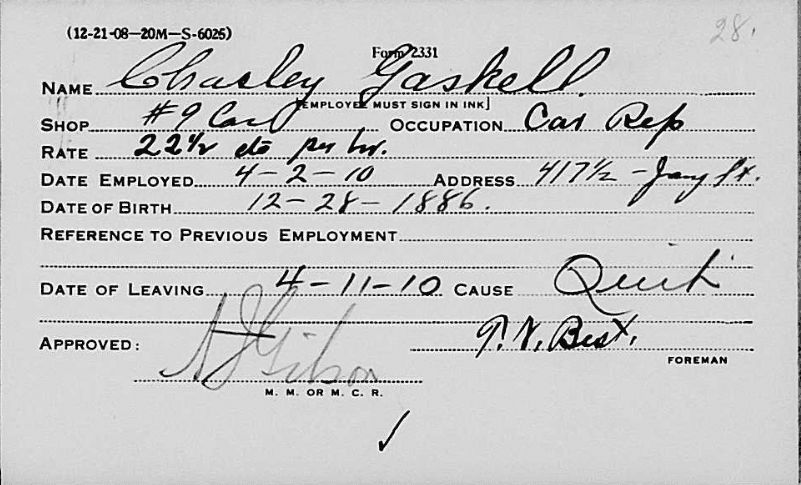 (12-21-08—20M—S-6025)
28.
Form 2331
NAME Charley Gaskell.
[EMPLOYEE MUST SIGN IN INK]
SHOP #9 Car OCCUPATION Car Rep
RATE 22 1/2 cts per hr.
DATE EMPLOYED 4-2-10 ADDRESS 417 1/2 - Jay St.
DATE OF BIRTH 12-28-1886.
REFERENCE TO PREVIOUS EMPLOYMENT
DATE OF LEAVING 4-11-10 CAUSE Quit
APPROVED: T. V. Best.
FOREMAN
A J Gibson
M. M. OR M. C. R.